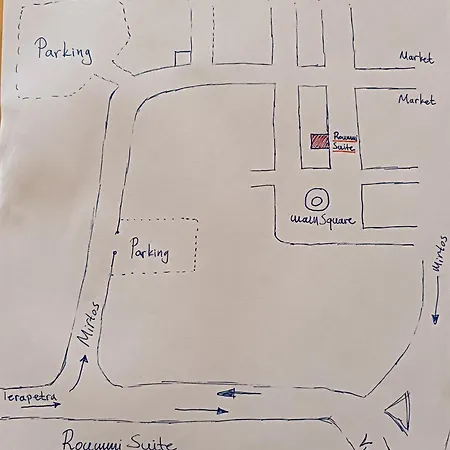 Parking
Market
Market
Roummi
Suite
Main Square
Parking
Mirtos
Mirtos
Ierapetra
Roummi Suite